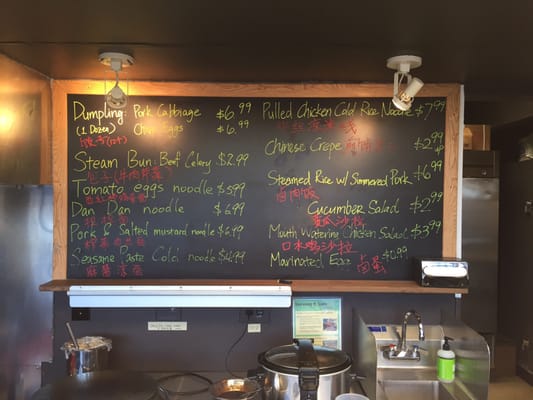 Dumpling: Pork Cabbage $6.99
(1 Dozen) $6.99
Steam Bun: Beef Celery $2.99
Tomato eggs noodle $5.99
Dan Dan noodle $6.99
Pork & Salted mustard noodle $6.99
Seasame Paste Cold noodle $4.99
麻酱凉面
Pulled Chicken Cold Rice Noodle $7.99
Chinese Crepe $2.99
Steamed Rice w/ Simmered Pork $6.99
卤肉饭
Cucumber Salad $2.99
黄瓜沙拉
Mouth Watering Chicken Salad $3.99
口水鸡沙拉
Marinated Egg $0.99
卤蛋